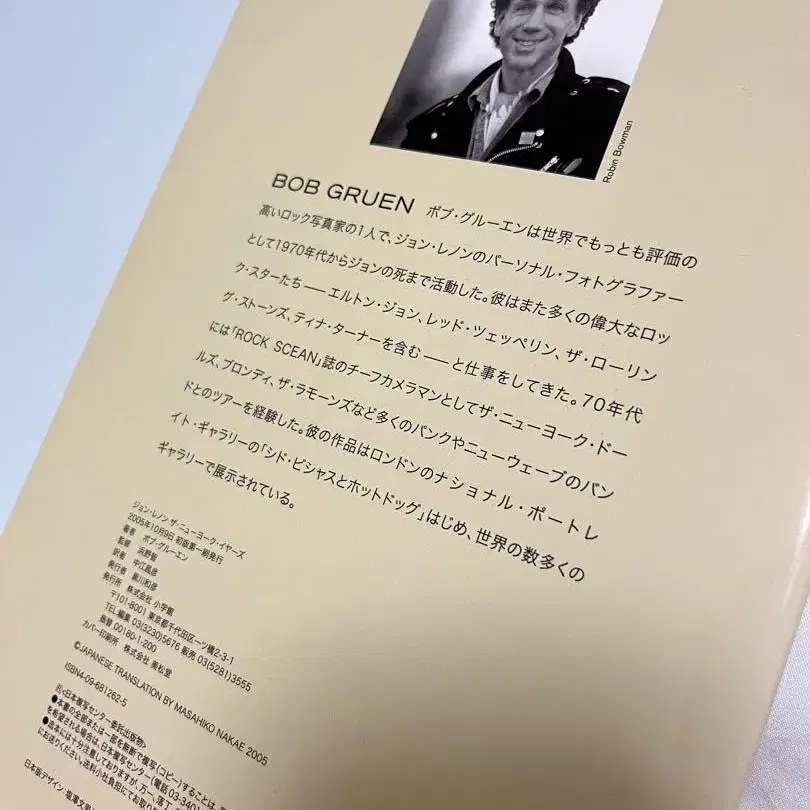 Robin Bowman
BOB GRUEN ボブ・グルーエンは世界でもっとも評価の
高いロック写真家の1人で、ジョン・レノンのパーソナル・フォトグラファー
として1970年代からジョンの死まで活動した。彼はまた多くの偉大なロッ
ク・スターたち——エルトン・ジョン、レッド・ツェッペリン、ザ・ローリン
グ・ストーンズ、ティナ・ターナーを含む——と仕事をしてきた。70年代
には「ROCK SCEAN」誌のチーフカメラマンとしてザ・ニューヨーク・ドー
ルズ、ブロンディ、ザ・ラモーンズなど多くのパンクやニューウェーブのバン
ドとのツアーを経験した。彼の作品はロンドンのナショナル・ポートレ
イト・ギャラリーの「シド・ビシャスとホットドッグ」はじめ、世界の数多くの
ギャラリーで展示されている。
ジョン・レノン ザ・ニューヨーク・イヤーズ
2005年10月9日 初版第一刷発行
著者 ボブ・グルーエン
監修 浜野智
訳者 中江昌彦
発行者 黒川和彦
発行所 株式会社 小学館
〒101-8001 東京都千代田区一ツ橋2-3-1
TEL 編集 03(3230)5676 販売 03(5281)3555
振替 00180-1-200
カバー印刷所 株式会社 美松堂
©JAPANESE TRANSLATION BY MASAHIKO NAKAE 2005
ISBN4-09-681262-5
R<日本複写センター委託出版物>
●本書の全部または一部を無断で複写(コピー)することは、
を希望される場合は、日本複写センター(電話 03-340
●造本には十分注意しておりますが、万一、落丁
にお送りください。送料小社負担にてお取り
日本版デザイン:塩澤文男